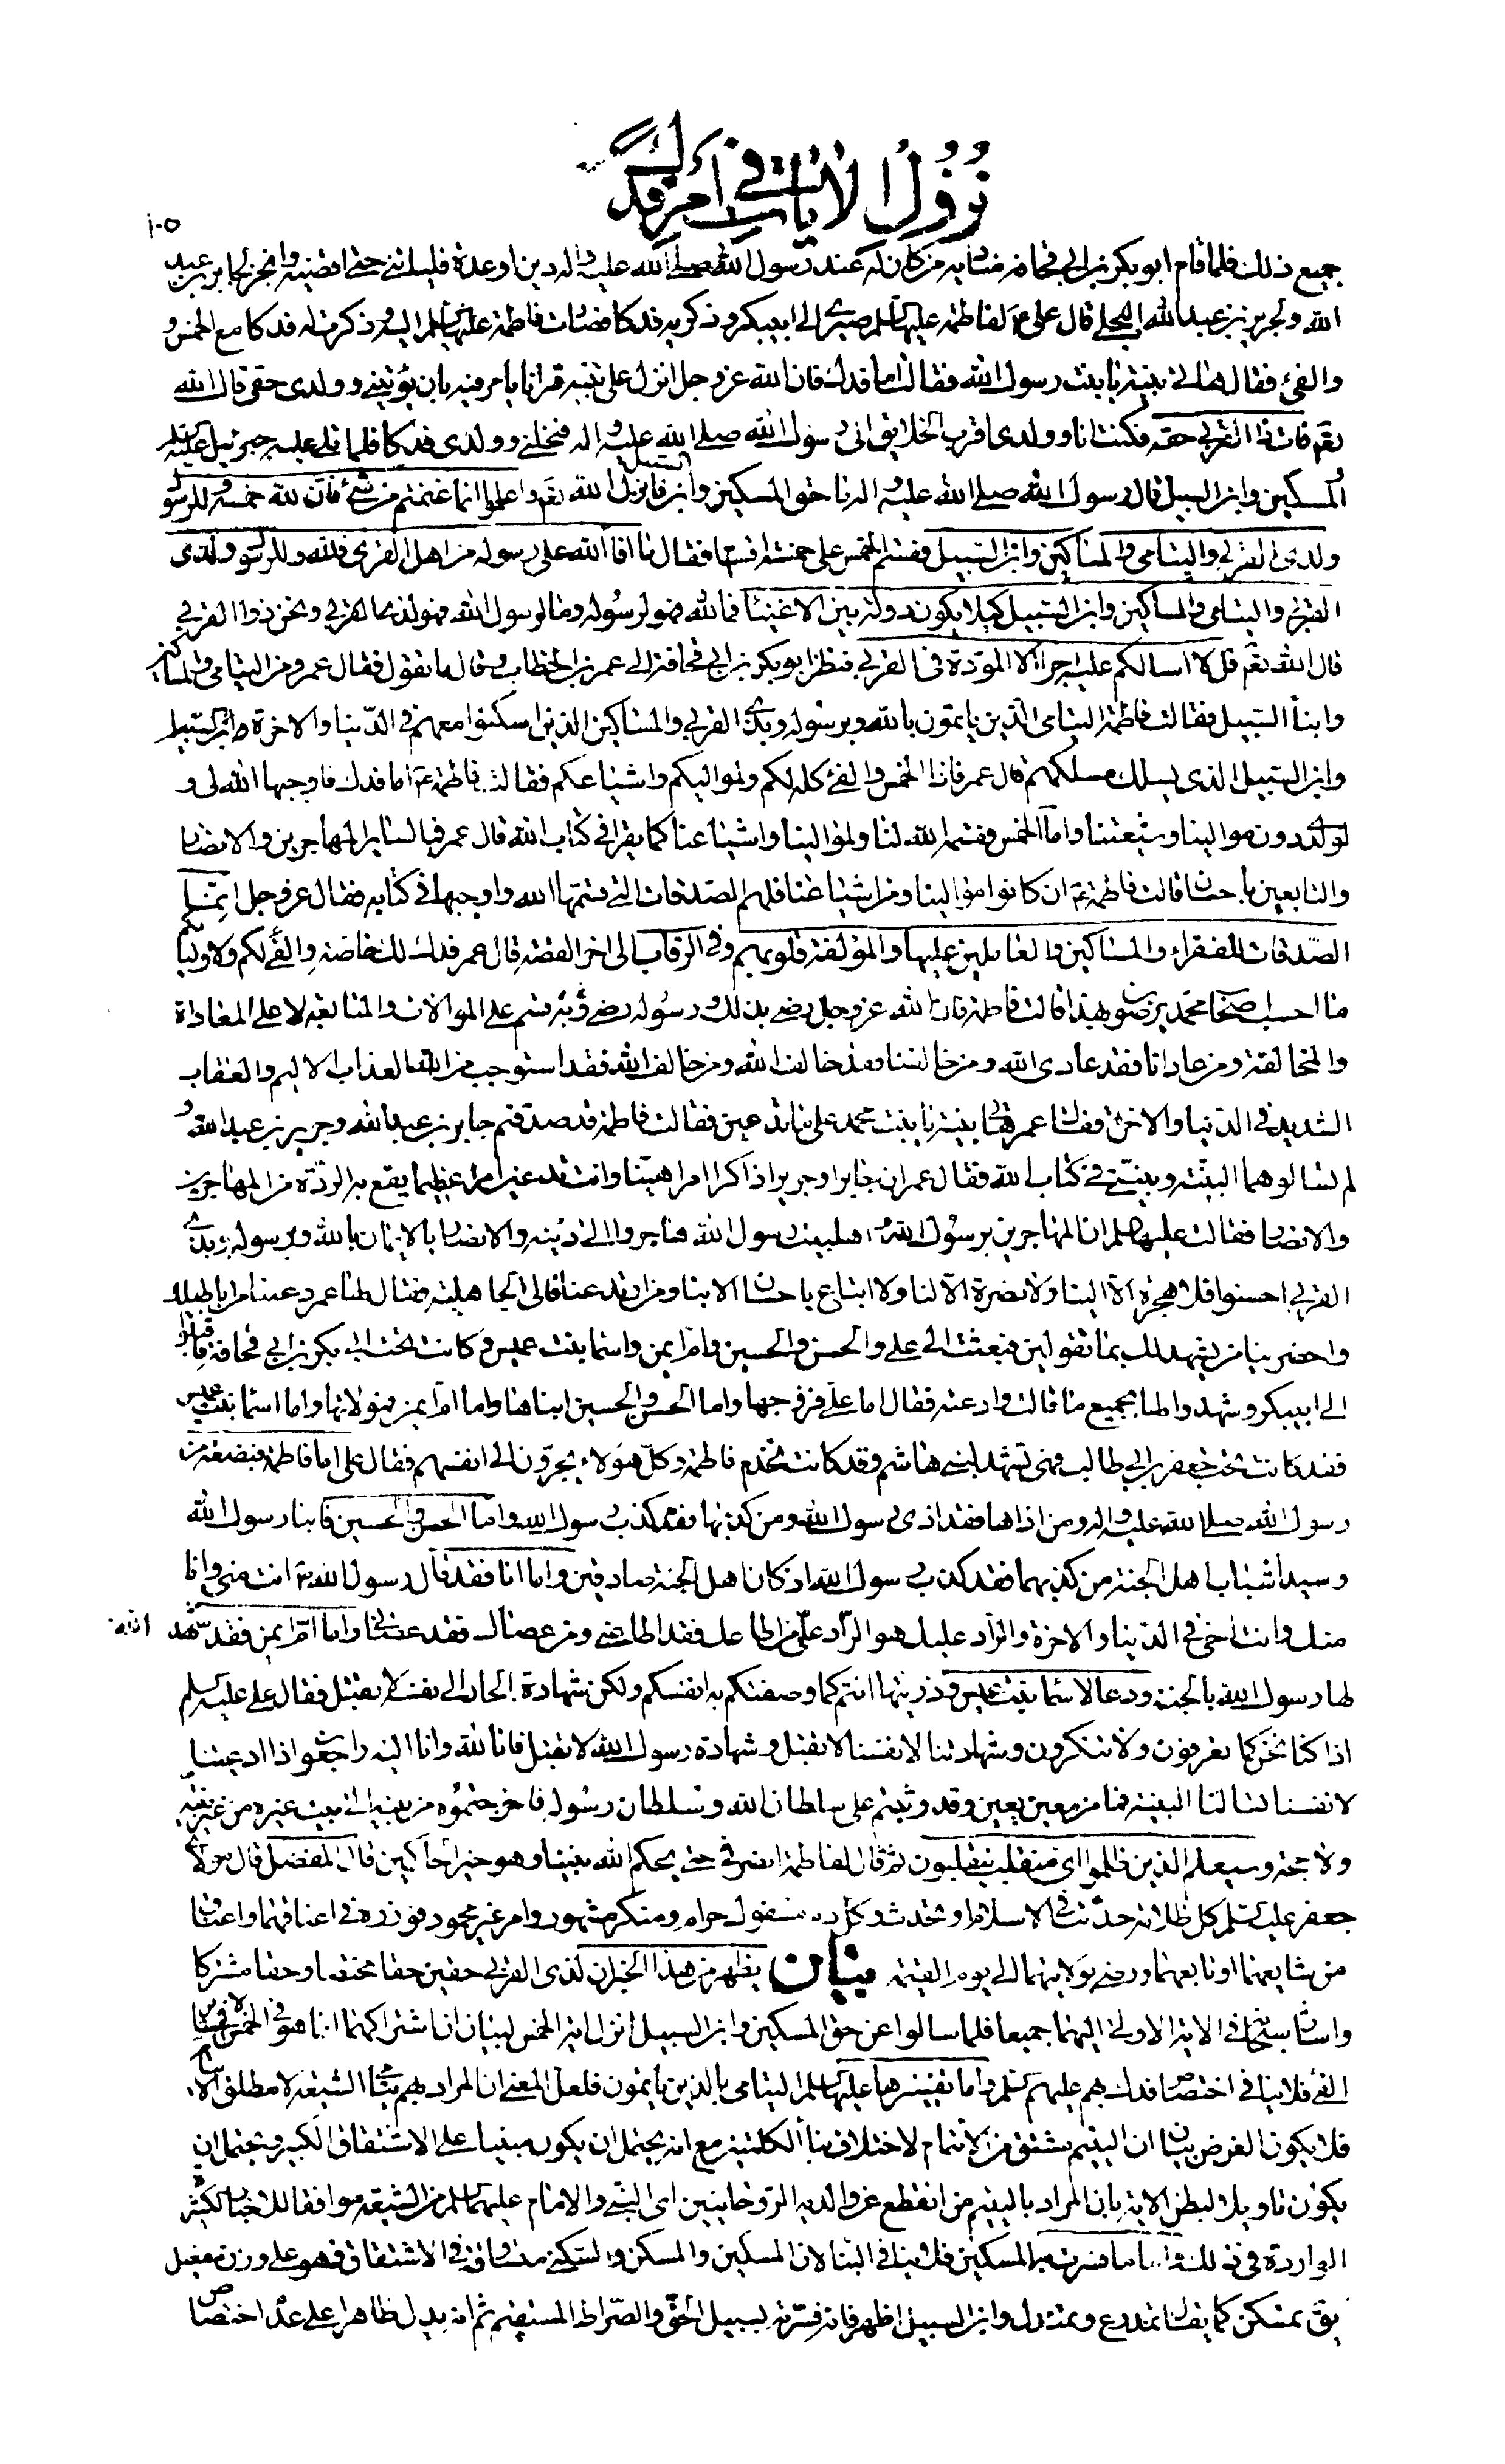 نزول الآيات في أمر فدك
١٠٥
جميع ذلك فلما قام ابو بكر بن ابي قحافة مناديه من كان له عند رسول الله صلى الله عليه واله دين او عدة فلياتني حتى اقضيه وانجز لجابر بن عبد
الله ولجرير بن عبد الله البجلي قال علي ع لفاطمة عليها السلم صيري الى ابي بكر وذكريه فدكا فصارت فاطمة عليها السلم اليه وذكرت له فدكا مع الخمس و
والفئ فقال هاتي بينة يا بنت رسول الله فقالت اما فدك فان الله عز وجل انزل على نبيه قرانا يامر فيه بان يؤتيني وولدي حقي قال الله
تعم فات ذا القربى حقه فكنت انا وولدي اقرب الخلايق الى رسول الله صلى الله عليه واله فنحلني وولدي فدكا فلما تلى عليه جبرئيل عليه السلم
والمسكين وابن السبيل قال رسول الله صلى الله عليه واله ما حق المسكين وابن السبيل فانزل الله تعم واعلموا انما غنمتم من شئ فان لله خمسه وللرسول
ولذي القربى واليتامى والمساكين وابن السبيل فقسم الخمس على خمسة اقسام فقال ما افاء الله على رسوله من اهل القرى فلله وللرسول ولذي
القربى واليتامى والمساكين وابن السبيل كيلا يكون دولة بين الاغنياء فما لله فهو لرسوله وما لرسول الله فهو لذي القربى ونحن ذوا القربى
قال الله تعم قل لا اسالكم عليه اجرا الا المودة في القربى فنظر ابو بكر بن ابي قحافة الى عمر بن الخطاب وقال ما تقول فقال عمر ومن اليتامى والمساكين
وابناء السبيل فقالت فاطمة اليتامى الذين ياتمون بالله وبرسوله وبذي القربى والمساكين الذين اسكنوا معهم في الدنيا والاخرة وابن السبيل
وابن السبيل الذي يسلك مسلكهم قال عمر فاذا الخمس والفئ كله لكم ولمواليكم واشياعكم فقالت فاطمة ع اما فدك فاوجبها الله لي و
لولدي دون موالينا وشيعتنا واما الخمس فقسمه الله لنا ولموالينا واشياعنا كما يقرا في كتاب الله قال عمر فما لساير المهاجرين والانصار
والتابعين باحسان قالت فاطمة ع ان كانوا موالينا ومن اشياعنا فلهم الصدقات التي قسمها الله واوجبها في كتابه فقال عز وجل انما
الصدقات للفقراء والمساكين والعاملين عليها والمؤلفة قلوبهم وفي الرقاب الى اخر القصة قال عمر فدك لك خاصة والفئ لكم ولاوليائكم
ما احسب اصحاب محمد يرضون بهذا قالت فاطمة فان الله عز وجل رضي بذلك ورسوله رضي به وقسم على الموالاة والمتابعة لا على المعاداة
والمخالفة ومن عادانا فقد عادى الله ومن خالفنا فقد خالف الله ومن خالف الله فقد استوجب من الله العذاب الاليم والعقاب
الشديد في الدنيا والاخرة فقال عمر هاتي بينة يا بنت محمد على ما تدعين فقالت فاطمة قد صدقتم جابر بن عبد الله وجرير بن عبد الله و
لم تسالوهما البينة وبينتي في كتاب الله فقال عمر ان جابرا وجريرا ذكرا امرا هينا وانت تدعين امرا عظيما يقع به الردة من المهاجرين
والانصار فقالت عليها السلم ان المهاجرين برسول الله واهل بيت رسول الله هاجروا الى دينه والانصار بالايمان بالله وبرسوله وبذي
القربى احسنوا فلا هجرة الا الينا ولا نصرة الا لنا ولا اتباع باحسان الا بنا ومن ارتد عنا فالى الجاهلية فقال لها عمر دعينا من اباطيلك
واحضرينا من يشهد لك بما تقولين فبعثت الى علي والحسن والحسين وام ايمن واسماء بنت عميس وكانت تحت ابي بكر بن ابي قحافة فاقبلوا
الى ابي بكر وشهدوا لها بجميع ما قالت وادعته فقال اما علي فزوجها واما الحسن والحسين ابناها واما ام ايمن فمولاتها واما اسماء بنت عميس
فقد كانت تحت جعفر بن ابي طالب فهي تشهد لبني هاشم وقد كانت تخدم فاطمة وكل هؤلاء يجرون الى انفسهم فقال علي اما فاطمة فبضعة من
رسول الله صلى الله عليه واله ومن اذاها فقد اذى رسول الله ومن كذبها فقد كذب رسول الله واما الحسن والحسين فابنا رسول الله
وسيدا شباب اهل الجنة من كذبهما فقد كذب رسول الله اذ كان اهل الجنة صادقين واما انا فقد قال رسول الله انت مني وانا
منك وانت اخي في الدنيا والاخرة والراد عليك هو الراد علي من اطاعك فقد اطاعني ومن عصاك فقد عصاني واما ام ايمن فقد شهد
لها رسول الله بالجنة ودعا لاسماء بنت عميس وذريتها انتم كما وصفتكم به انفسكم ولكن شهادة الجار الى نفسه لا تقبل فقال علي عليه السلم
اذا كنا نحن كما تعرفون ولا تنكرون وشهادتنا لانفسنا لا تقبل وشهادة رسول الله لا تقبل فانا لله وانا اليه راجعون اذا ادعينا
لانفسنا تسالنا البينة فما من معين يعين وقد وثبتم على سلطان الله وسلطان رسوله فاخرجتموه من بيته الى بيت غيره من غير بينة
ولا حجة وسيعلم الذين ظلموا اي منقلب ينقلبون ثم قال لفاطمة انصرفي حتى يحكم الله بيننا وهو خير الحاكمين قال المفضل قال مولاي
جعفر عليه السلم كل ظلامة حدثت في الاسلام او تحدث وكل دم مسفوك حرام ومنكر مشهور وامر غير محمود فوزره في اعناقهما واعناق
من شايعهما او تابعهما ورضي بولايتهما الى يوم القيمة بيان يظهر من هذا الخبر ان لذي القربى حقين حقا مختصا وحقا مشتركا
واشار سبحانه في الاية الاولى اليهما جميعا فلما سالوا عن حق المسكين وابن السبيل انزل اية الخمس لبيان ان اشتراكهما انما هو في الخمس لا في ساير
الفئ فلا ينافي اختصاص فدك بهم عليهم السلم واما تفسيرها عليها السلم اليتامى بالذين ياتمون فلعل المعنى ان المراد بهم يتامى الشيعة لا مطلق الايتام
فلا يكون الغرض بيان ان اليتيم مشتق من الائتمام لاختلاف بناء الكلمتين مع انه يحتمل ان يكون مبنيا على الاشتقاق الكبير ويحتمل ان
يكون تاويلا لبطن الاية بان المراد باليتيم من انقطع عن والديه الروحانيين اي النبي والامام عليهما السلم من الشيعة موافقا للاخبار الكثيرة
الواردة في ذلك واما ما فسرت به المسكين فلا ينافي البناء لان المسكين والمسكن والسكنى متساوق في الاشتقاق وهو على وزن مفعيل
يق تمسكن كما يقال تمدرع وتمندل وابن السبيل اظهر فانه فسرته بسبيل الحق والصراط المستقيم ثم انه يدل ظاهرا على عدم اختصاص